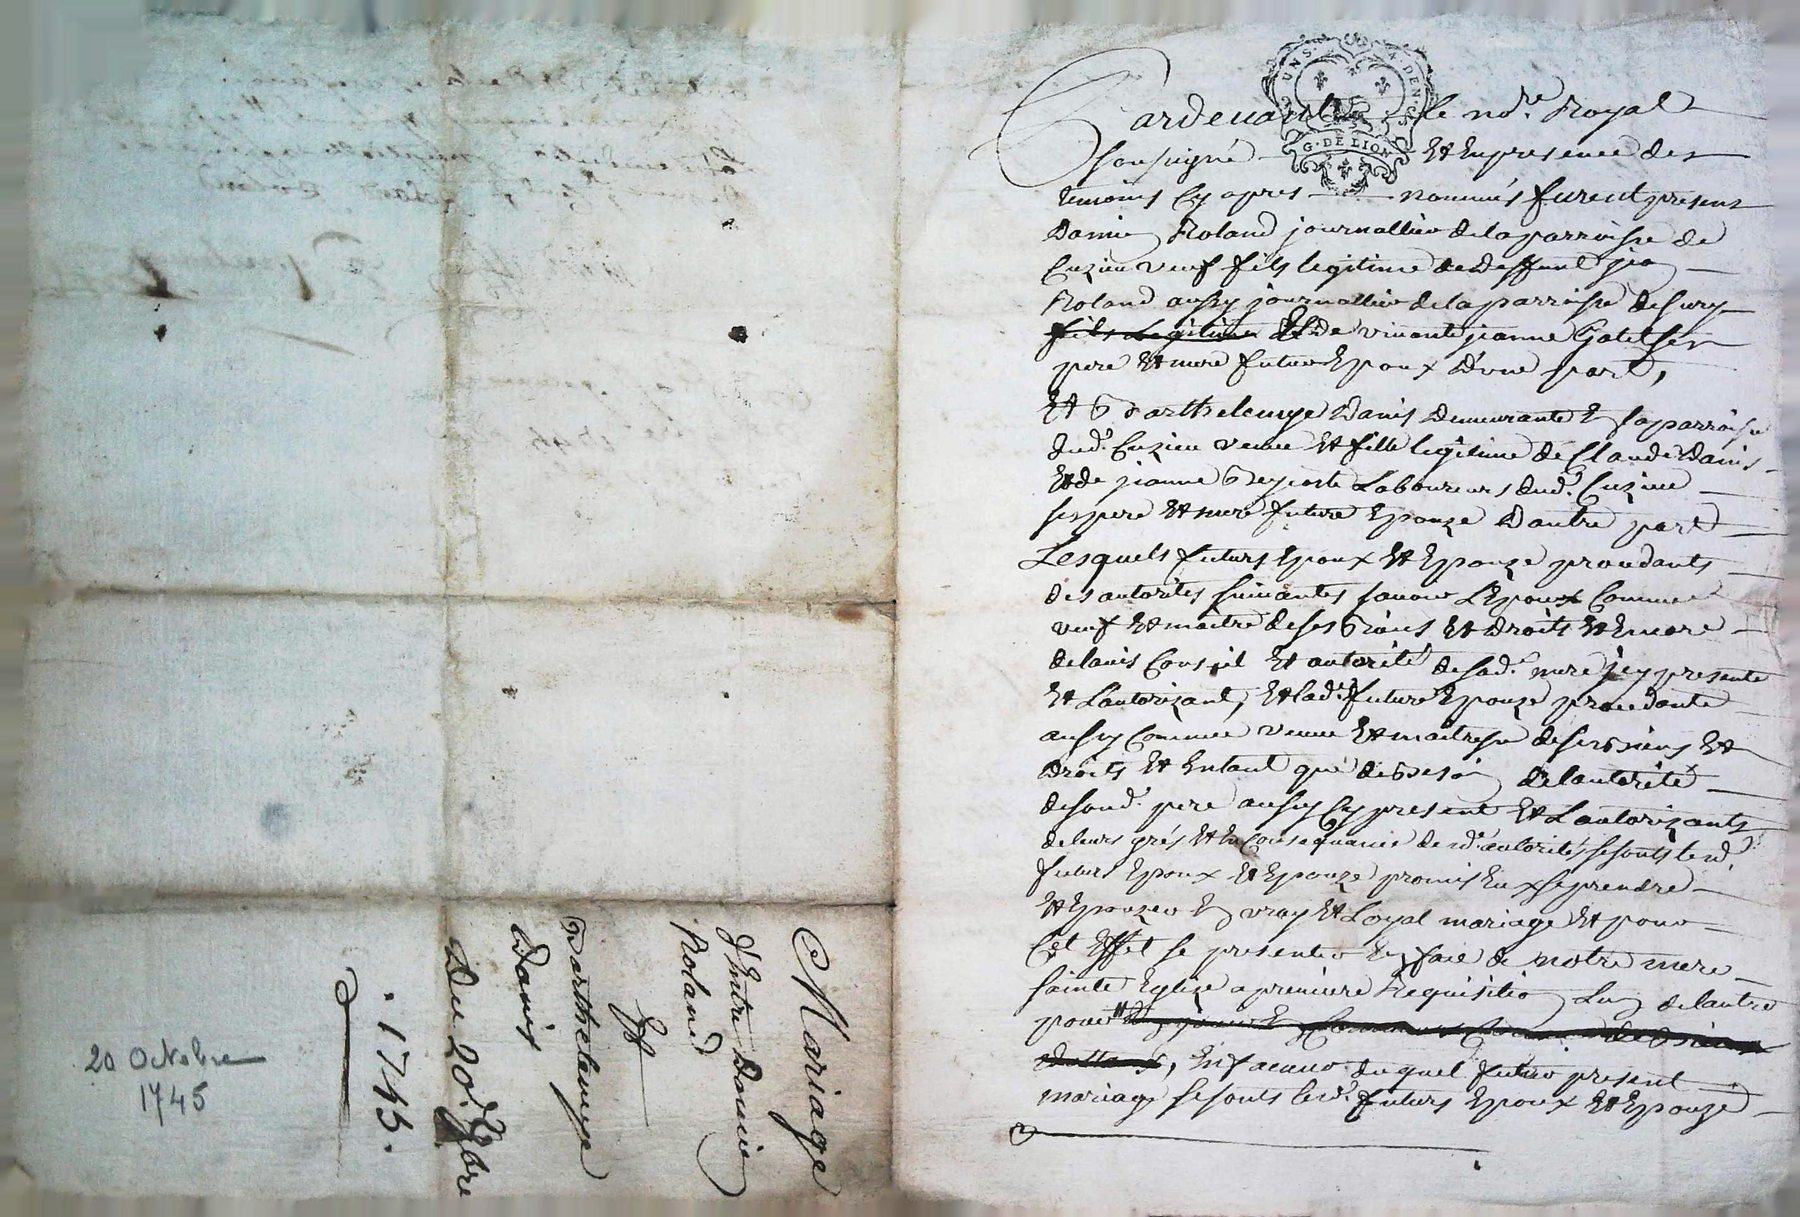 Mariage
d'Entre Damien
Roland
Et
Barthelemye
Danis
Du 20.e 8bre
. 1745.
20 Octobre
1745
UNS. DEN. C.S.
G. DE LION
Pardevant le no.re Royal
Soussigné Et En presence des
temoins Cy apres nommés furent presens
Damien Roland journallier de la parroisse de
Cuzieu veuf fils legitime de deffunt jean
Roland aussy journallier de la parroisse de Sury
fils Legitime Et de vivante jeanne
pere Et mere futur Epoux D'une part,
Et Barthelemye Danis Demeurante En la parroisse
dud. Cuzieu veuve Et fille legitime de Claude Danis
Et de jeanne Laboureurs dud. Cuzieu
ses pere Et mere future Epouze D'autre part
Lesquels futurs Epoux Et Epouze procedants
des autorités suivantes savoir L'Epoux Comme
veuf Et maitre de ses Biens Et droits Et Encore
de l'avis Conseil Et autorité de sad. mere icy presente
Et L'autorizant, Et lad. future Epouze procedante
aussy Comme veuve Et maitresse de ses Biens Et
droits Et Entant que de Besoin de l'autorité
de sond. pere aussy Cy present Et L'autorizants
de leurs grés Et En Consequance desd. autorités se sont lesd.
futurs Epoux Et Epouze promis Eux se prendre
Et Epouzer En vray Et Loyal mariage Et pour
Cet Effet se presenter En face de notre mere
sainte Eglise a premiere Requisition L'un de l'autre
pour
, En faveur duquel futur present
mariage se sont lesd. futurs Epoux Et Epouze